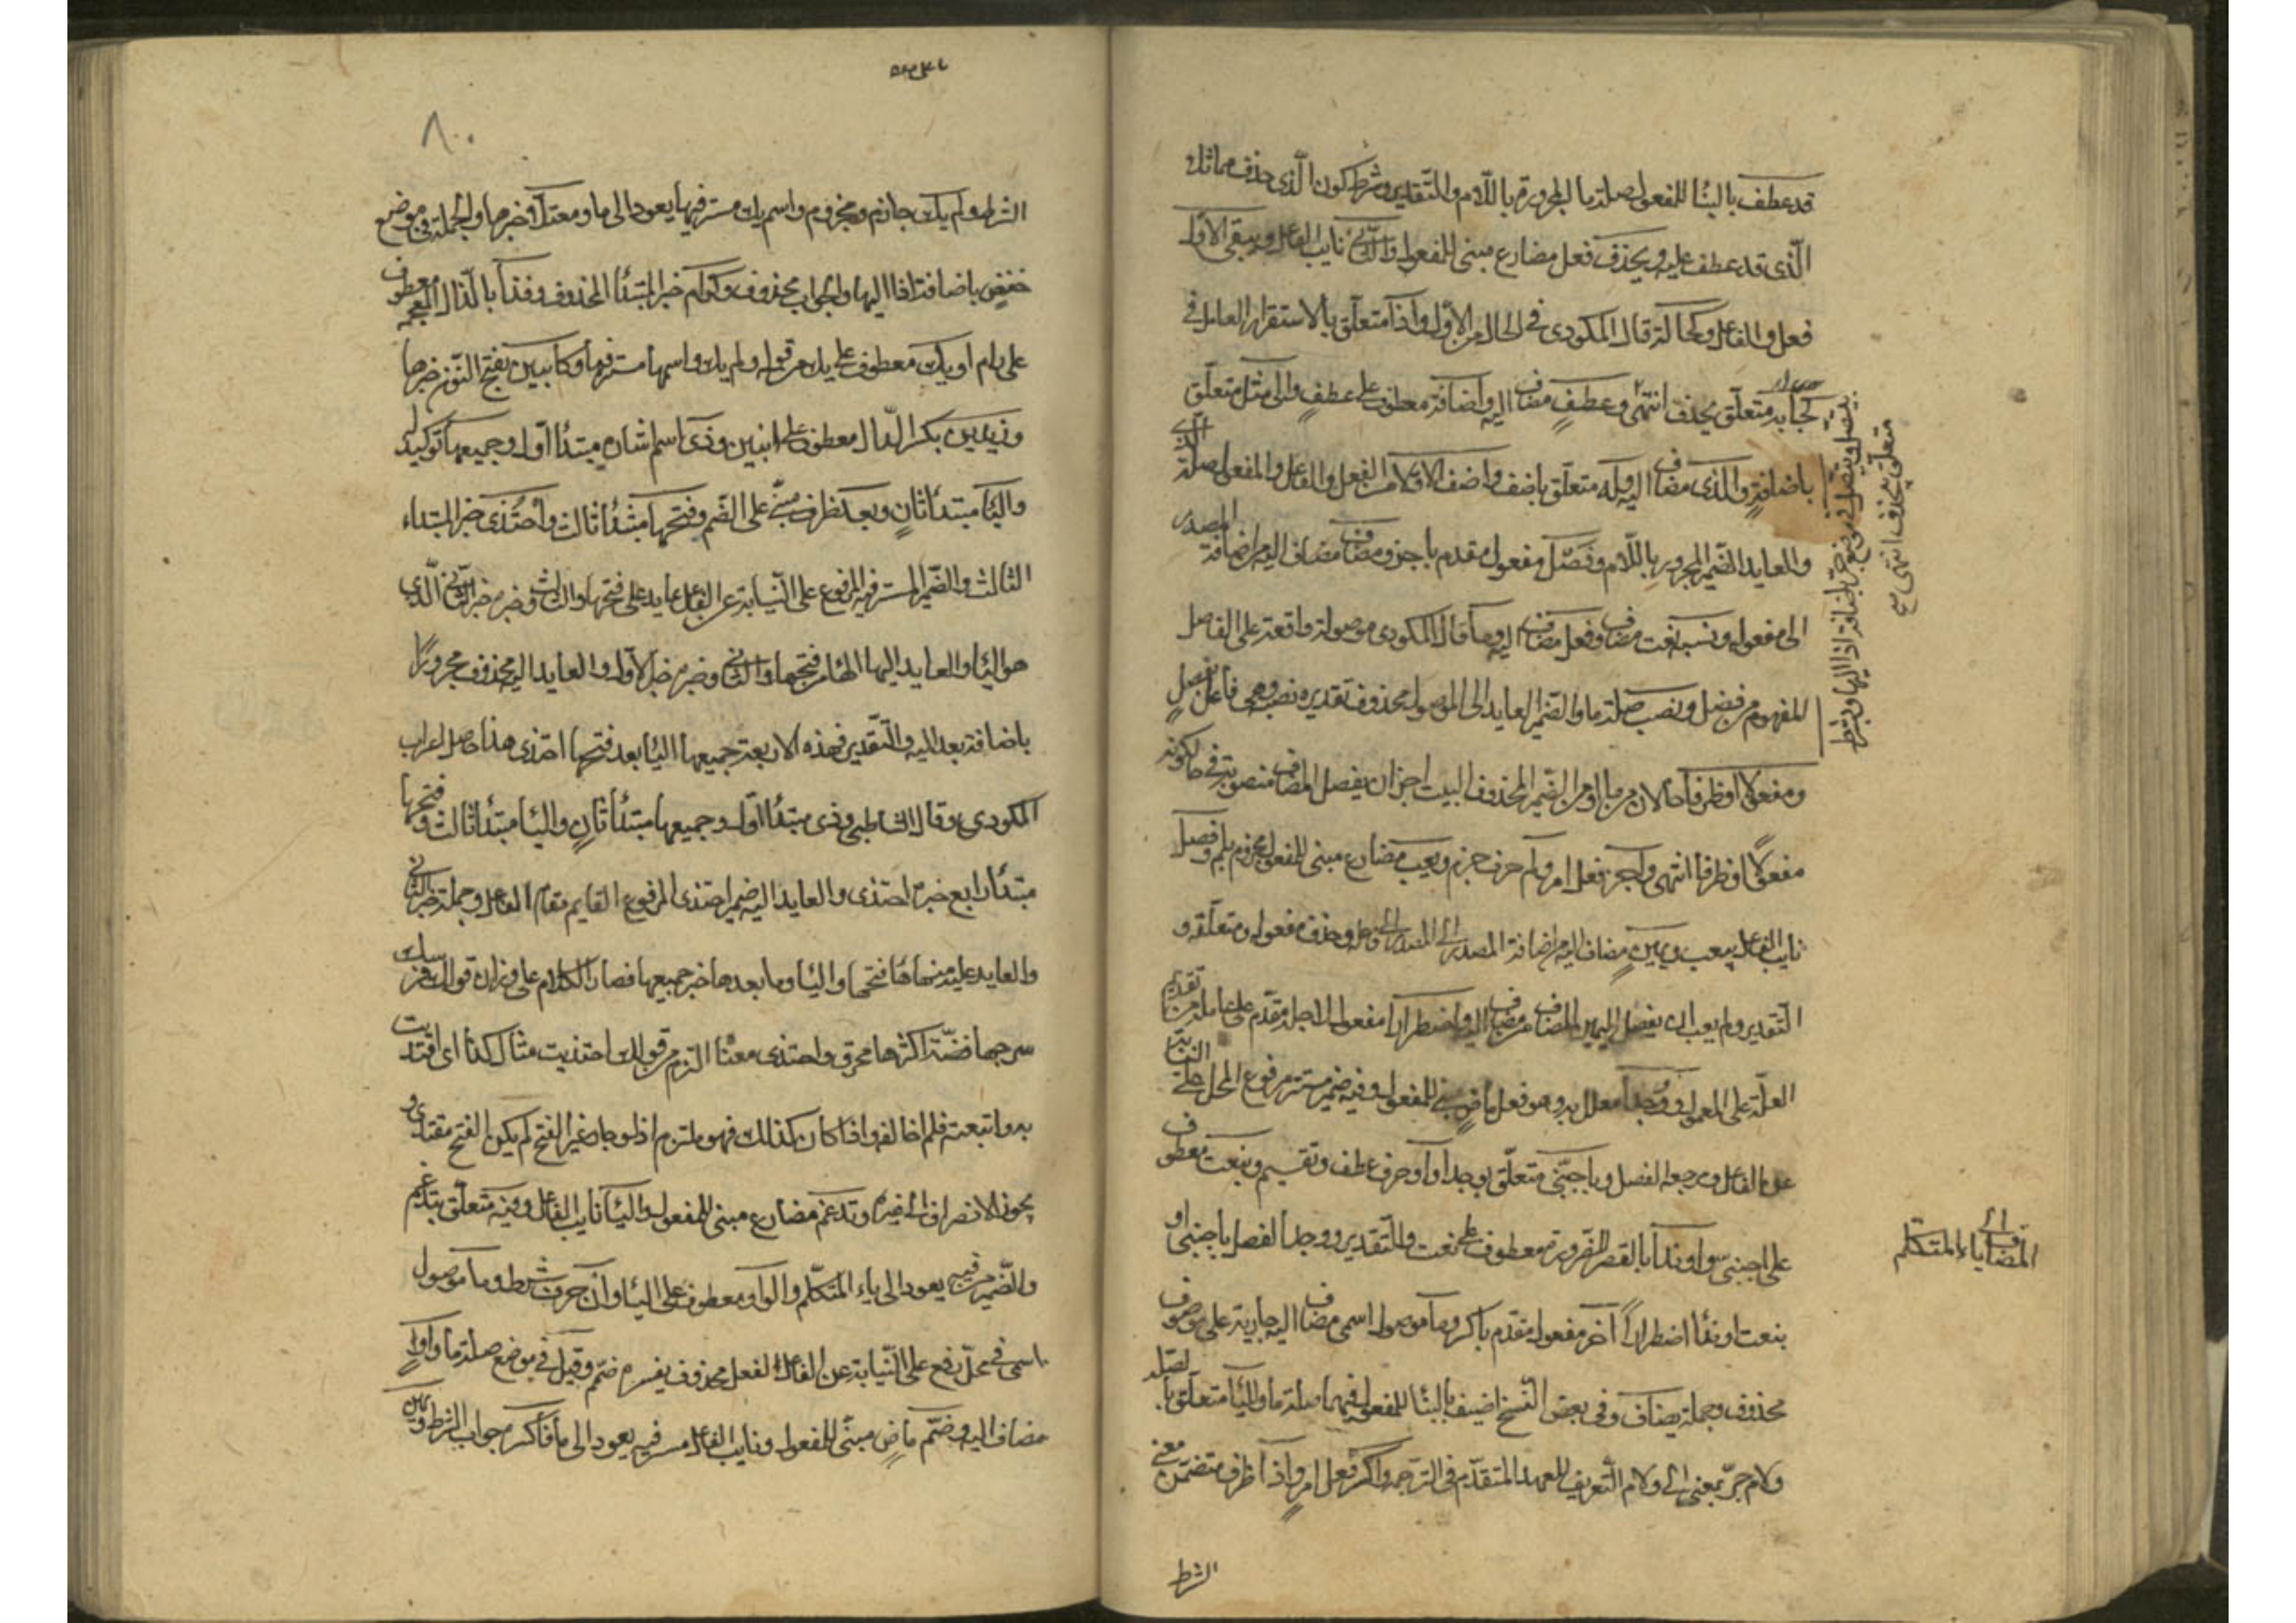 قد عطف بالبنا للمفعول صلة ما المجرورة باللام والتقدير وشرط كون الذى حذف مماثل
الذى قد عطف عليه ويحذف فعل مضارع مبنى للمفعول والثانى نايب الفاعل ويبقى الاول
فعل والفاعل وكحاله قال المكودى فى الحال من الاول واذا متعلق بالاستقرار العامل فى
كحاله به متعلق بحذف انتهى وعطف مضاف اليه واضافة معطوف على عطف والى مثل متعلق
باضافة والذى مضاف اليه وله متعلق باضفت واضفت الاولا من الفعل والفاعل والمفعول صلة الذى
والعايد الضمير المجرور باللام وفصل مفعول مقدم باجز ومضاف مضاف اليه من اضافة المصدر
الى مفعوله وشبه نعت مضاف وفعل مضاف اليه وما قال المكودى موصولة واقعة على الفاصل
المفهوم من فصل ونصب صلة ما والضمير العايد الى الموصول محذوف تقديره نصبه وهى فاعل بفصل
ومفعولا او ظرفا حالان من ما او من الضمير المحذوف البيت اجز ان يفصل المضاف منصوبه فى حال كونه
مفعولا او ظرفا انتهى واجز فعل امر ولم حرف جزم ويعب مضارع مبنى للمفعول مجزوم بلم وفصل
نايب الفاعل بيعب ويمين مضاف اليه من اضافة المصدر الى فاعله وحذف مفعوله ومتعلقه و
التقدير ولم يعب ان يفصل اليمين المضاف من مضاف اليه واضطرارا مفعول لاجله مقدم على عامله من تقديم
العلة على المعلول ووجدا معلل به وهو فعل ماض مبنى للمفعول وفيه ضمير مستتر مرفوع المحل على النيابة
عن الفاعل ومرجعه الفصل وباجنبى متعلق بوجد او او حرف عطف وتقسيم وبنعت معطوف
على اجنبى واو ندا بالقصر للضرورة معطوف على نعت والتقدير ووجد الفصل باجنبى او
بنعت او ندا اضطرارا آخر مفعول مقدم باكسر وما موصول اسمى مضاف اليه جارية على موصوف
محذوف وجملة يضاف وفى بعض النسخ اضيف بالبنا للمفعول فيهما صلة ما واليا متعلق
ولام جر بمعنى الى ولام التعريف للعهد المتقدم فى الترجمة واكسر فعل امر واذا ظرف متضمن معنى
الشرط
يتصل فى موضع جر باضافة اذا اليها وشرط
متعلق بحذف انتهى صح
المضاف الى ياء المتكلم
٨٠
الشرط ولم يك جازم ومجزوم واسم يك مستتر فيها يعود الى ما ومعتلا خبرها والجملة فى موضع
خفض باضافة اذا اليها والجواب محذوف وكرام خبر المبتدا المحذوف وقذا بالذال المعجمة معطوف
على رام او يك معطوف على يك من قوله ولم يك واسمها مستتر فيها وكابنين بفتح النون خبرها
وزيدين بكسر الدال معطوف على ابنين وذى اسم اشارة مبتدا اول وجميعها توكيد لذى
واليا مبتدا ثان وبعد ظرف مبنى على الضم وفتحها مبتدا ثالث واحتذى خبر المبتداء
الثالث والضمير المستتر فيه المرفوع على النيابة عن الفاعل عايد على فتحها والثالث وخبره خبر الثانى الذى
هو اليا والعايد اليها الها من فتحها والثانى وخبره خبر الاول والعايد اليه محذوف مجرورا
باضافة بعد اليه والتقدير فهذه الاربعة جميعها اليا بعد فتحها احتذى هذا حاصل اعراب
المكودى وقال الشاطبى وذى مبتدا اول وجميعها مبتدأ ثان واليا مبتدأ ثالث وفتحها
مبتدأ رابع خبره احتذى والعايد اليه ضمير احتذى المرفوع القايم مقام الفاعل وجملة خبر الثانى
والعايد عليه منها ها فتحها واليا وما بعدها خبر جميعها فصار الكلام على وزان قولك فرسك
سرجها فضة اكثرها محرق واحتذى معناه التزم من قولك احتذيت مثال كذا اى اقتديت
به واتبعته فلم اخالفه واذا كان كذلك فهو ملتزم اذ لو جاز غير الفتح لم يكن الفتح مقتدى و
يجوز الانصراف الى غيره وتدغم مضارع مبنى للمفعول واليا نايب الفاعل وفيه متعلق بتدغم
والضمير من فيه يعود الى ياء المتكلم والواو معطوف على اليا وان حرف شرط وما موصول
اسمى فى محل رفع على النيابة عن الفاعل لفعل محذوف يفسره ضم وقبل فى موضع صلة ما وواو
مضاف اليه وضم ماض مبنى للمفعول ونايب الفاعل مستتر فيه يعود الى ما فاكسره جواب الشرط